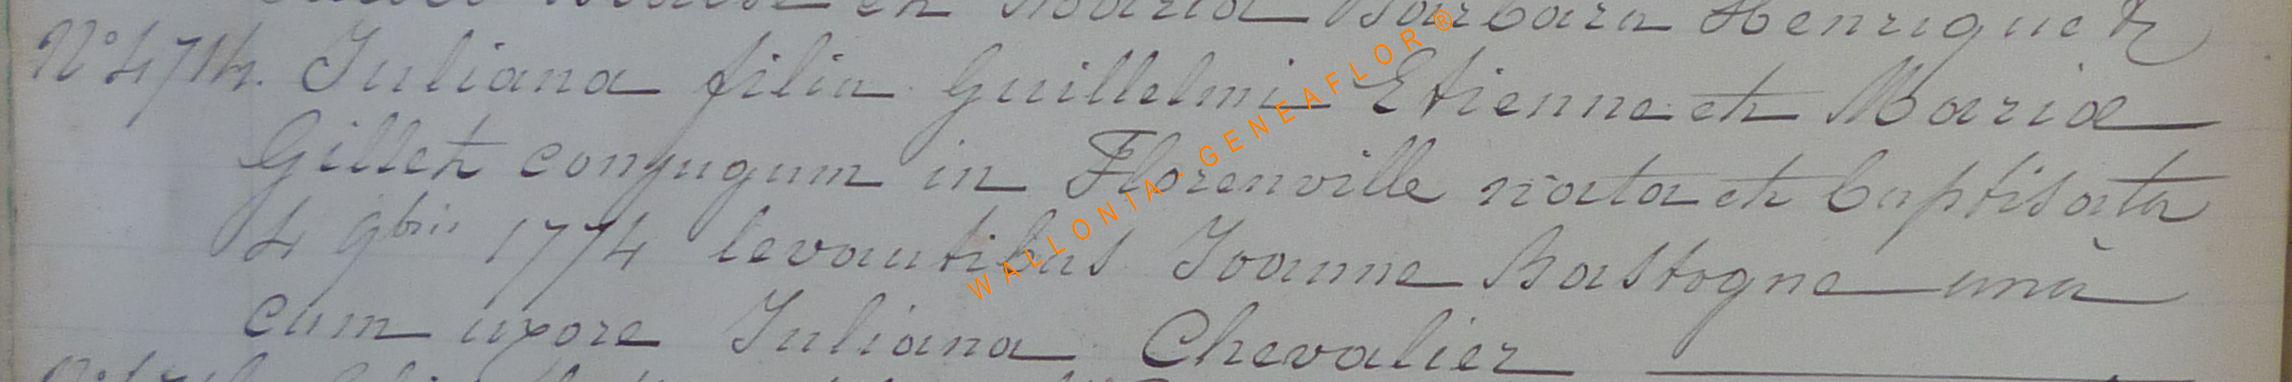 et Maria Barbara Henriquet
N° 474. Juliana filia Guillelmi Etienne et Mariæ
Gillet conjugum in Florenville nata et baptisata
4 9bris 1774 levantibus Joanne Bastogne unà
cum uxore Juliana Chevalier
WALLONIA-GENEAFLOR®